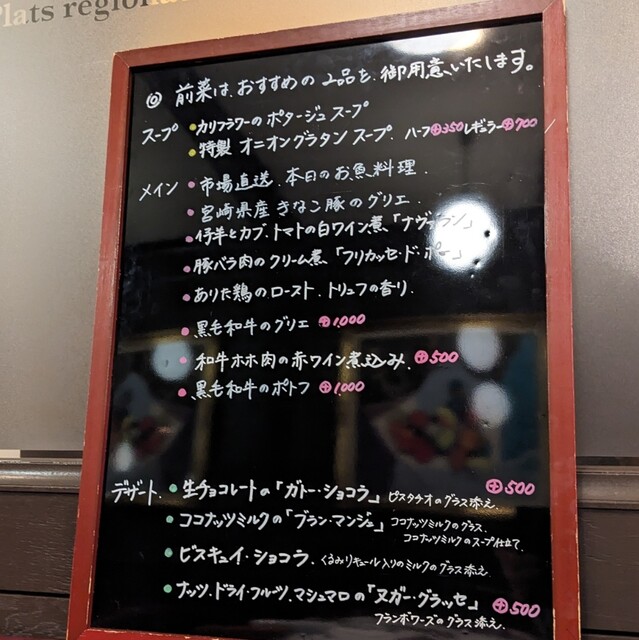 Plats region
◎ 前菜は、おすすめの 2品を、御用意いたします。
スープ ・カリフラワーの ポタージュ スープ
・特製 オニオングラタン スープ. ハーフ⊕350 レギュラー⊕700
メイン ・市場直送. 本日の お魚料理.
・宮崎県産 きなこ豚の グリエ.
・仔羊とカブ、トマトの白ワイン煮、「ナヴァラン」
・豚バラ肉のクリーム煮、「フリカッセ・ド・ポー」
・ありた鶏の ロースト. トリュフの香り.
・黒毛和牛のグリエ ⊕1,000
・和牛ホホ肉の赤ワイン煮込み. ⊕500
・黒毛和牛のポトフ ⊕1,000
デザート. ・生チョコレートの「ガトー・ショコラ」 ピスタチオのグラス添え. ⊕500
・ココナッツミルクの「ブラン・マンジェ」 ココナッツミルクのグラス.
ココナッツミルクのスープ仕立て.
・ビスキュイ・ショコラ. くるみリキュール入りのミルクのグラス添え.
・ナッツ、ドライ・フルーツ、マシュマロの「ヌガー・グラッセ」 ⊕500
フランボワーズのグラス添え.